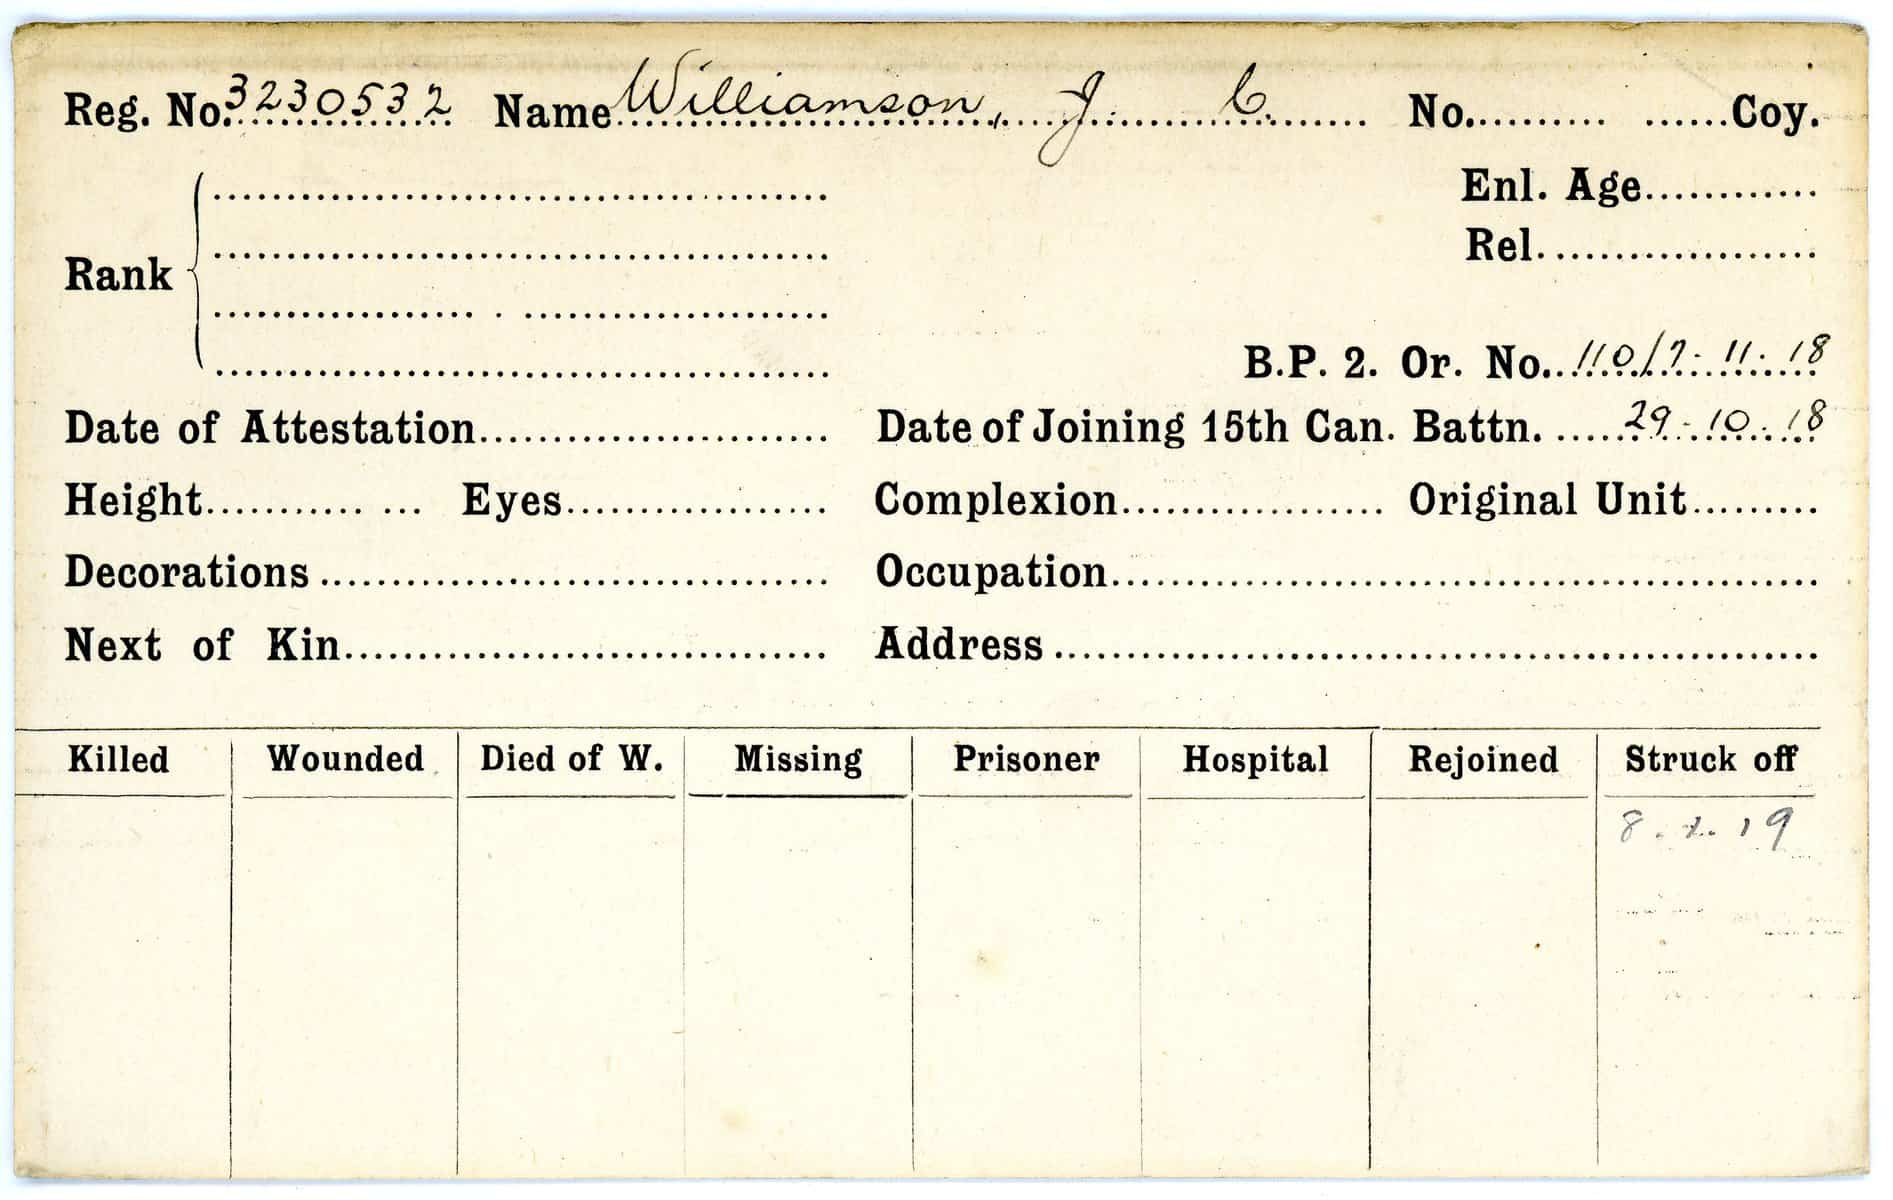 Reg. No. 3230532 Name Williamson, J. C. No. Coy.
Enl. Age
Rel.
Rank
B.P. 2. Or. No. 110/7-11-18
Date of Attestation Date of Joining 15th Can. Battn. 29-10-18
Height Eyes Complexion Original Unit
Decorations Occupation
Next of Kin Address
Killed Wounded Died of W. Missing Prisoner Hospital Rejoined Struck off
8.2.19